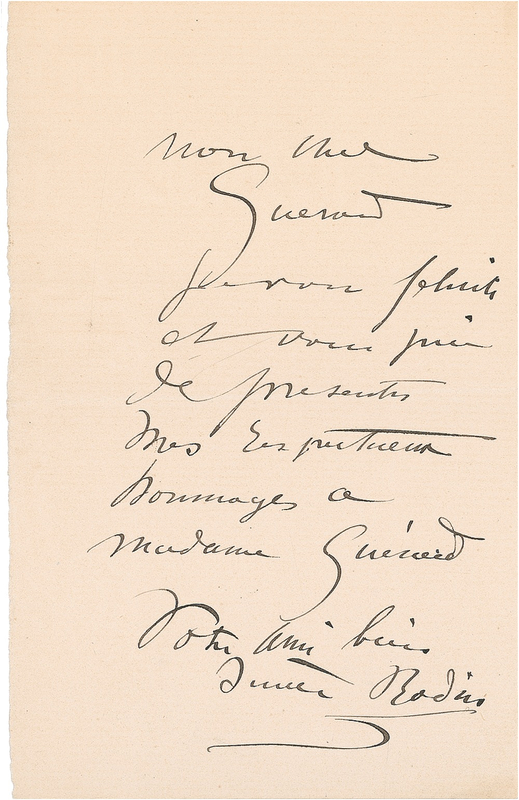 Mon cher
Guerard
Je vous félicite
et vous prie
de presenter
Mes respectueux
hommages a
madame Guérard
Votre ami bien
Rodin